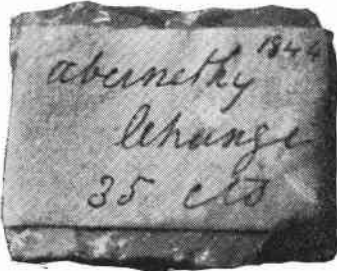 1844
abernethy
Change
35 cts